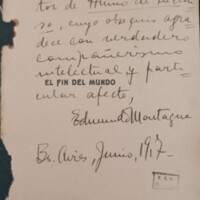 tor de "Himno de
so, cuyo obsequio agra-
dece con verdadero
compañerismo
intelectual y parti-
EL FIN DEL MUNDO
cular afecto,
Edmundo Montagne
Bs. Aires, Junio, 1917-